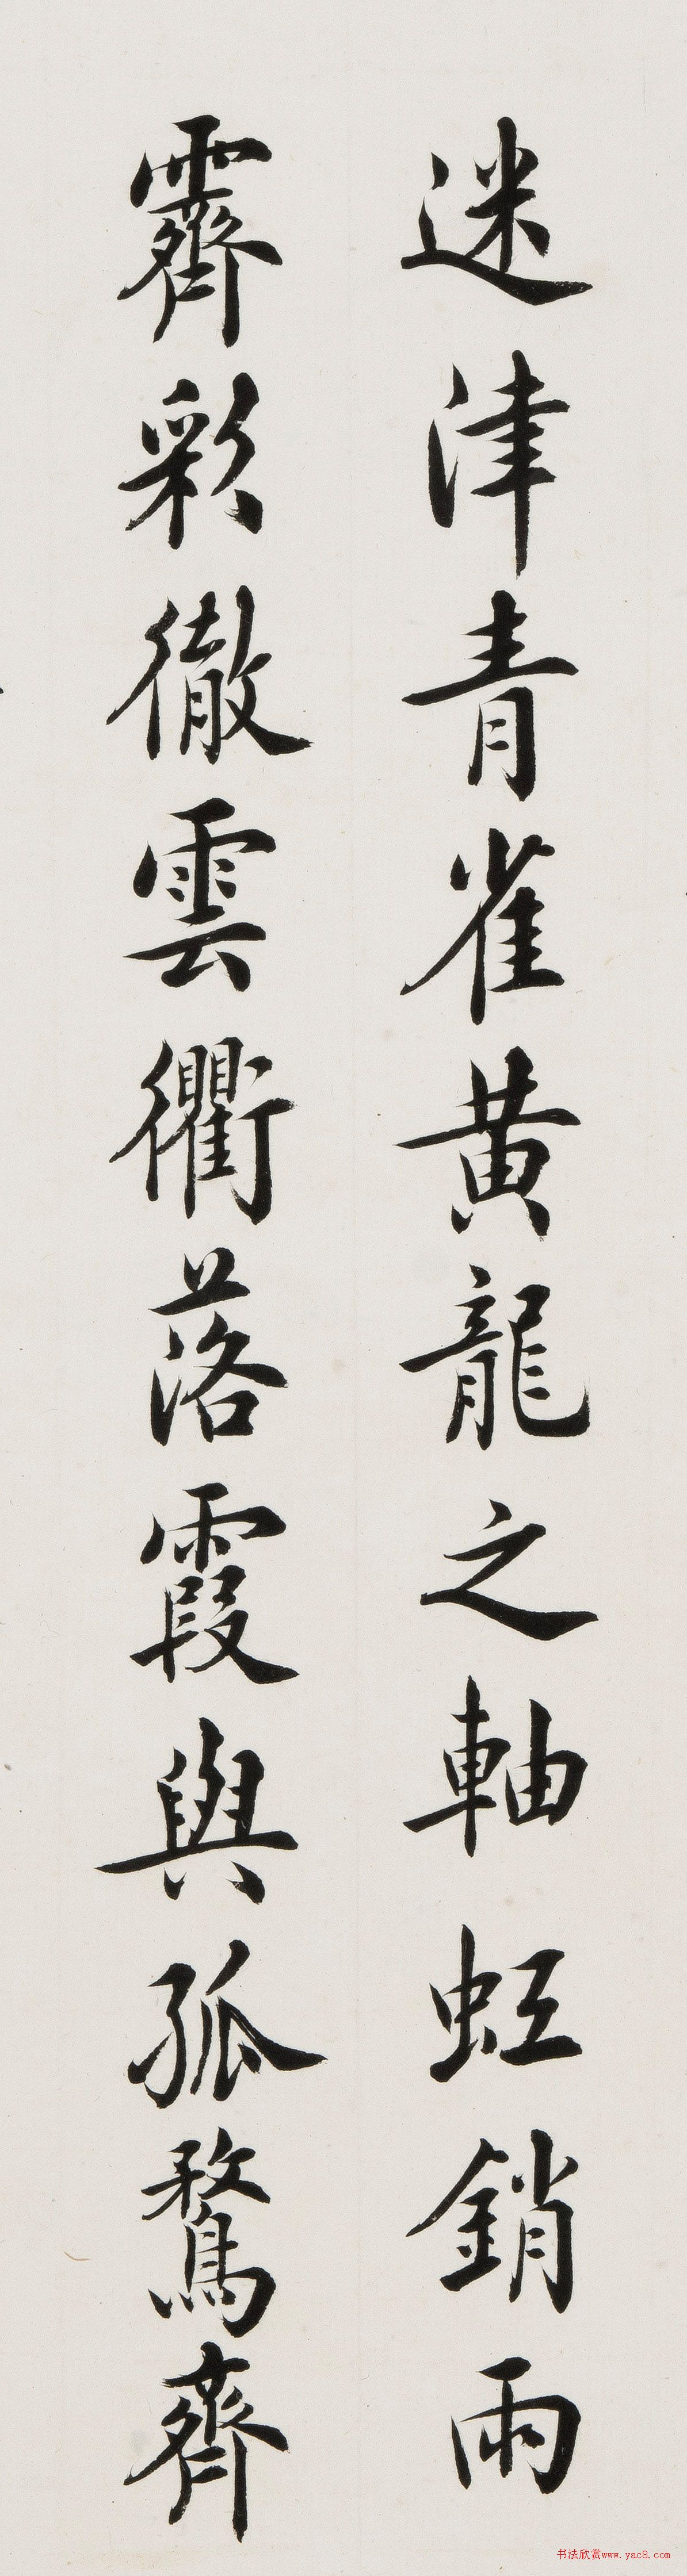 迷津青雀黄龍之軸虹銷雨
霽彩徹雲衢落霞與孤鶩齊
书法欣赏www.yac8.com